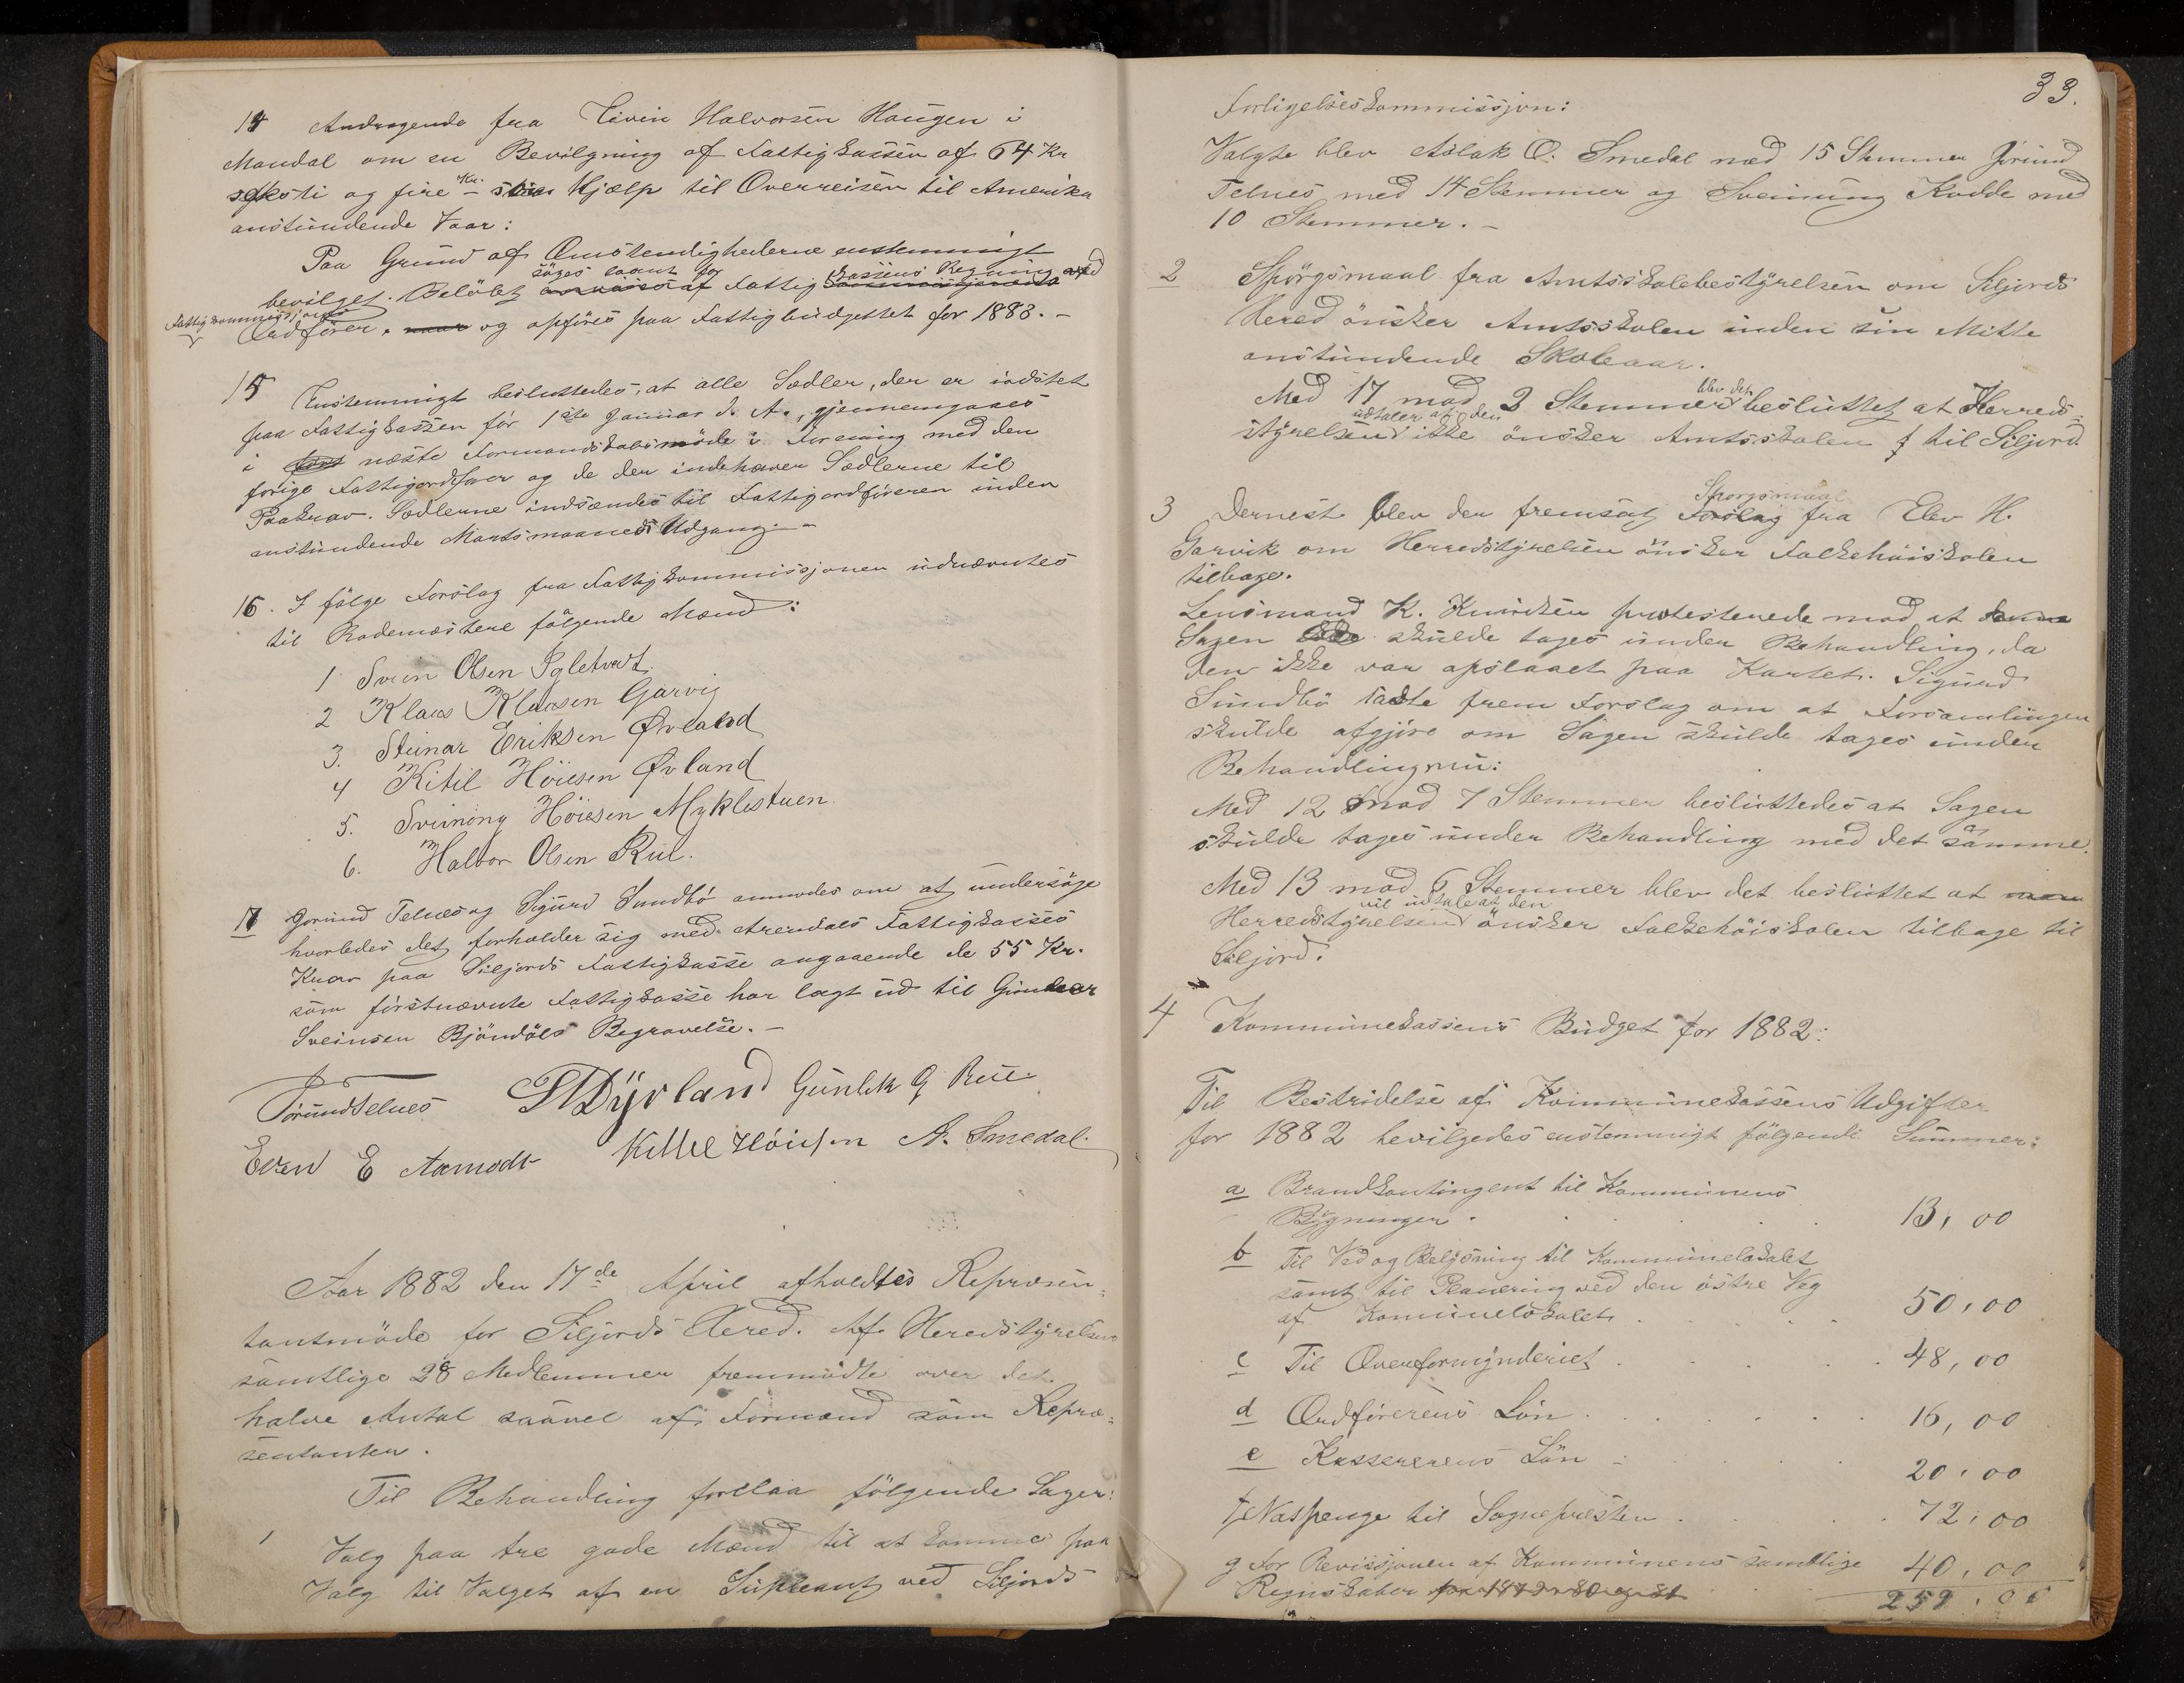 14 Andragende fra Eivin Halvorsen Haugen i
Mandal om en Bevilgning af Fattigkassen af 64 Kr
seksti og fire Kr. – som Hjælp til Overreisen til Amerika
anstundende Vaar:
Paa Grund af Omstendighederne enstemmigt
bevilget. Beløbet søges laant for Fattigkassens Regning ved
Fattigkommissjonens
Ordfører, og opføres paa Fattigbudgettet for 1883. –
15 Enstemmigt besluttedes, at alle Sedler, der er indstet
paa Fattigkassen før 1ste Januar d. A., gjennemgaaes
i næste Formandskabsmøde i Forening med den
forige Fattigordfører og de der indehaver Sedlerne til
Paakrav. Sedlerne indsendes til Fattigordføreren inden
anstundende Martsmaaneds Udgang. –
16. I følge Forslag fra Fattigkommissjonen udnævntes
til Rodemestere følgende Mænd:
1 Svein Olsen Igletveit.
2 Klaus Klausen Garvig
3. Steinar Eriksen Øvland
4 Kitil Høiesen Øvland
5. Sveinong Høiesen Myklestuen.
6. Halvor Olsen Rui.
17 Jorund Telnes og Sigurd Sundbö anmodes om at undersøge
hvorledes det forholder sig med Arendals Fattigkasses
Krav paa Siljords Fattigkasse angaaende de 55 Kr.
som førstnævnte Fattigkasse har lagt ud til Gunder
Sveinsen Bjöndöls Begravelse. –
Jorund Telnes Dyrland Gunlek G Rui
Even E Aamodt Kittel Höiesen A. Smedal.
Aar 1882 den 17de April afholdtes Repræsen-
tantmöde for Siljords Hered. Af Heredstyrelsens
samtlige 28 Medlemmer fremmødte over det
halve Antal saavel af Formænd som Repræ-
sentanter.
Til Behandling forelaa følgende Sager:
1 Valg paa tre gode Mænd til at komme paa
Valg til Valget af en Supleant ved Siljords
33.
Forligelseskommissjon:
Valgte blev Aslak O. Smedal med 15 Stemmer Jorund
Telnes med 14 Stemmer og Sveinung Kodde med
10 Stemmer. –
2 Spørgsmaal fra Amtsskolebestyrelsen om Siljords
Hered önsker Amtsskolen inden sin Midte
anstundende Skoleaar.
Med 17 mod 2 Stemmer blev det besluttet at Herreds-
styrelsen udtaler at den ikke önsker Amtsskolen til Siljord.
3 Dernest blev der fremsat Spørgsmaal fra Elev H.
Garvik om Herredstyrelsen önsker Folkehøiskolen
tilbage.
Lensmand K. Knudsen protesterede mod at denne
Sagen skulde tages under Behandling, da
den ikke var opslaaet paa Kartet. Sigurd
Sundbö satte frem Forslag om at Forsamlingen
skulde afgjøre om Sagen skulde tages under
Behandling nu:
Med 12 mod 7 Stemmer besluttedes at Sagen
skulde tages under Behandling med det samme.
Med 13 mod 6 Stemmer blev det besluttet at
Herredstyrelsen vil udtale at den önsker Folkehöiskolen tilbage til
Siljord.
4 Kommunekassens Budget for 1882:
Til Bestridelse af Kommunekassens Udgifter
for 1882 bevilgedes enstemmigt følgende Summer:
a Brandkontingent til Kommunens
Bygninger . . . . . 13,00
b Til Ved og Belysning til Kommunelokalet
samt til Planering ved den östre Veg
af Komunelokalet . . . . 50,00
c Til Overformynderiet . . . . 48,00
d Ordförerens Lön . . . . . 16,00
e Kassererens Lön . . . . 20,00
f Natpenge til Sognepresten . . . 72,00
g For Revissjonen af Kommunens samtlige 40,00
Regnskaber for 1879-80 og 81
259,00